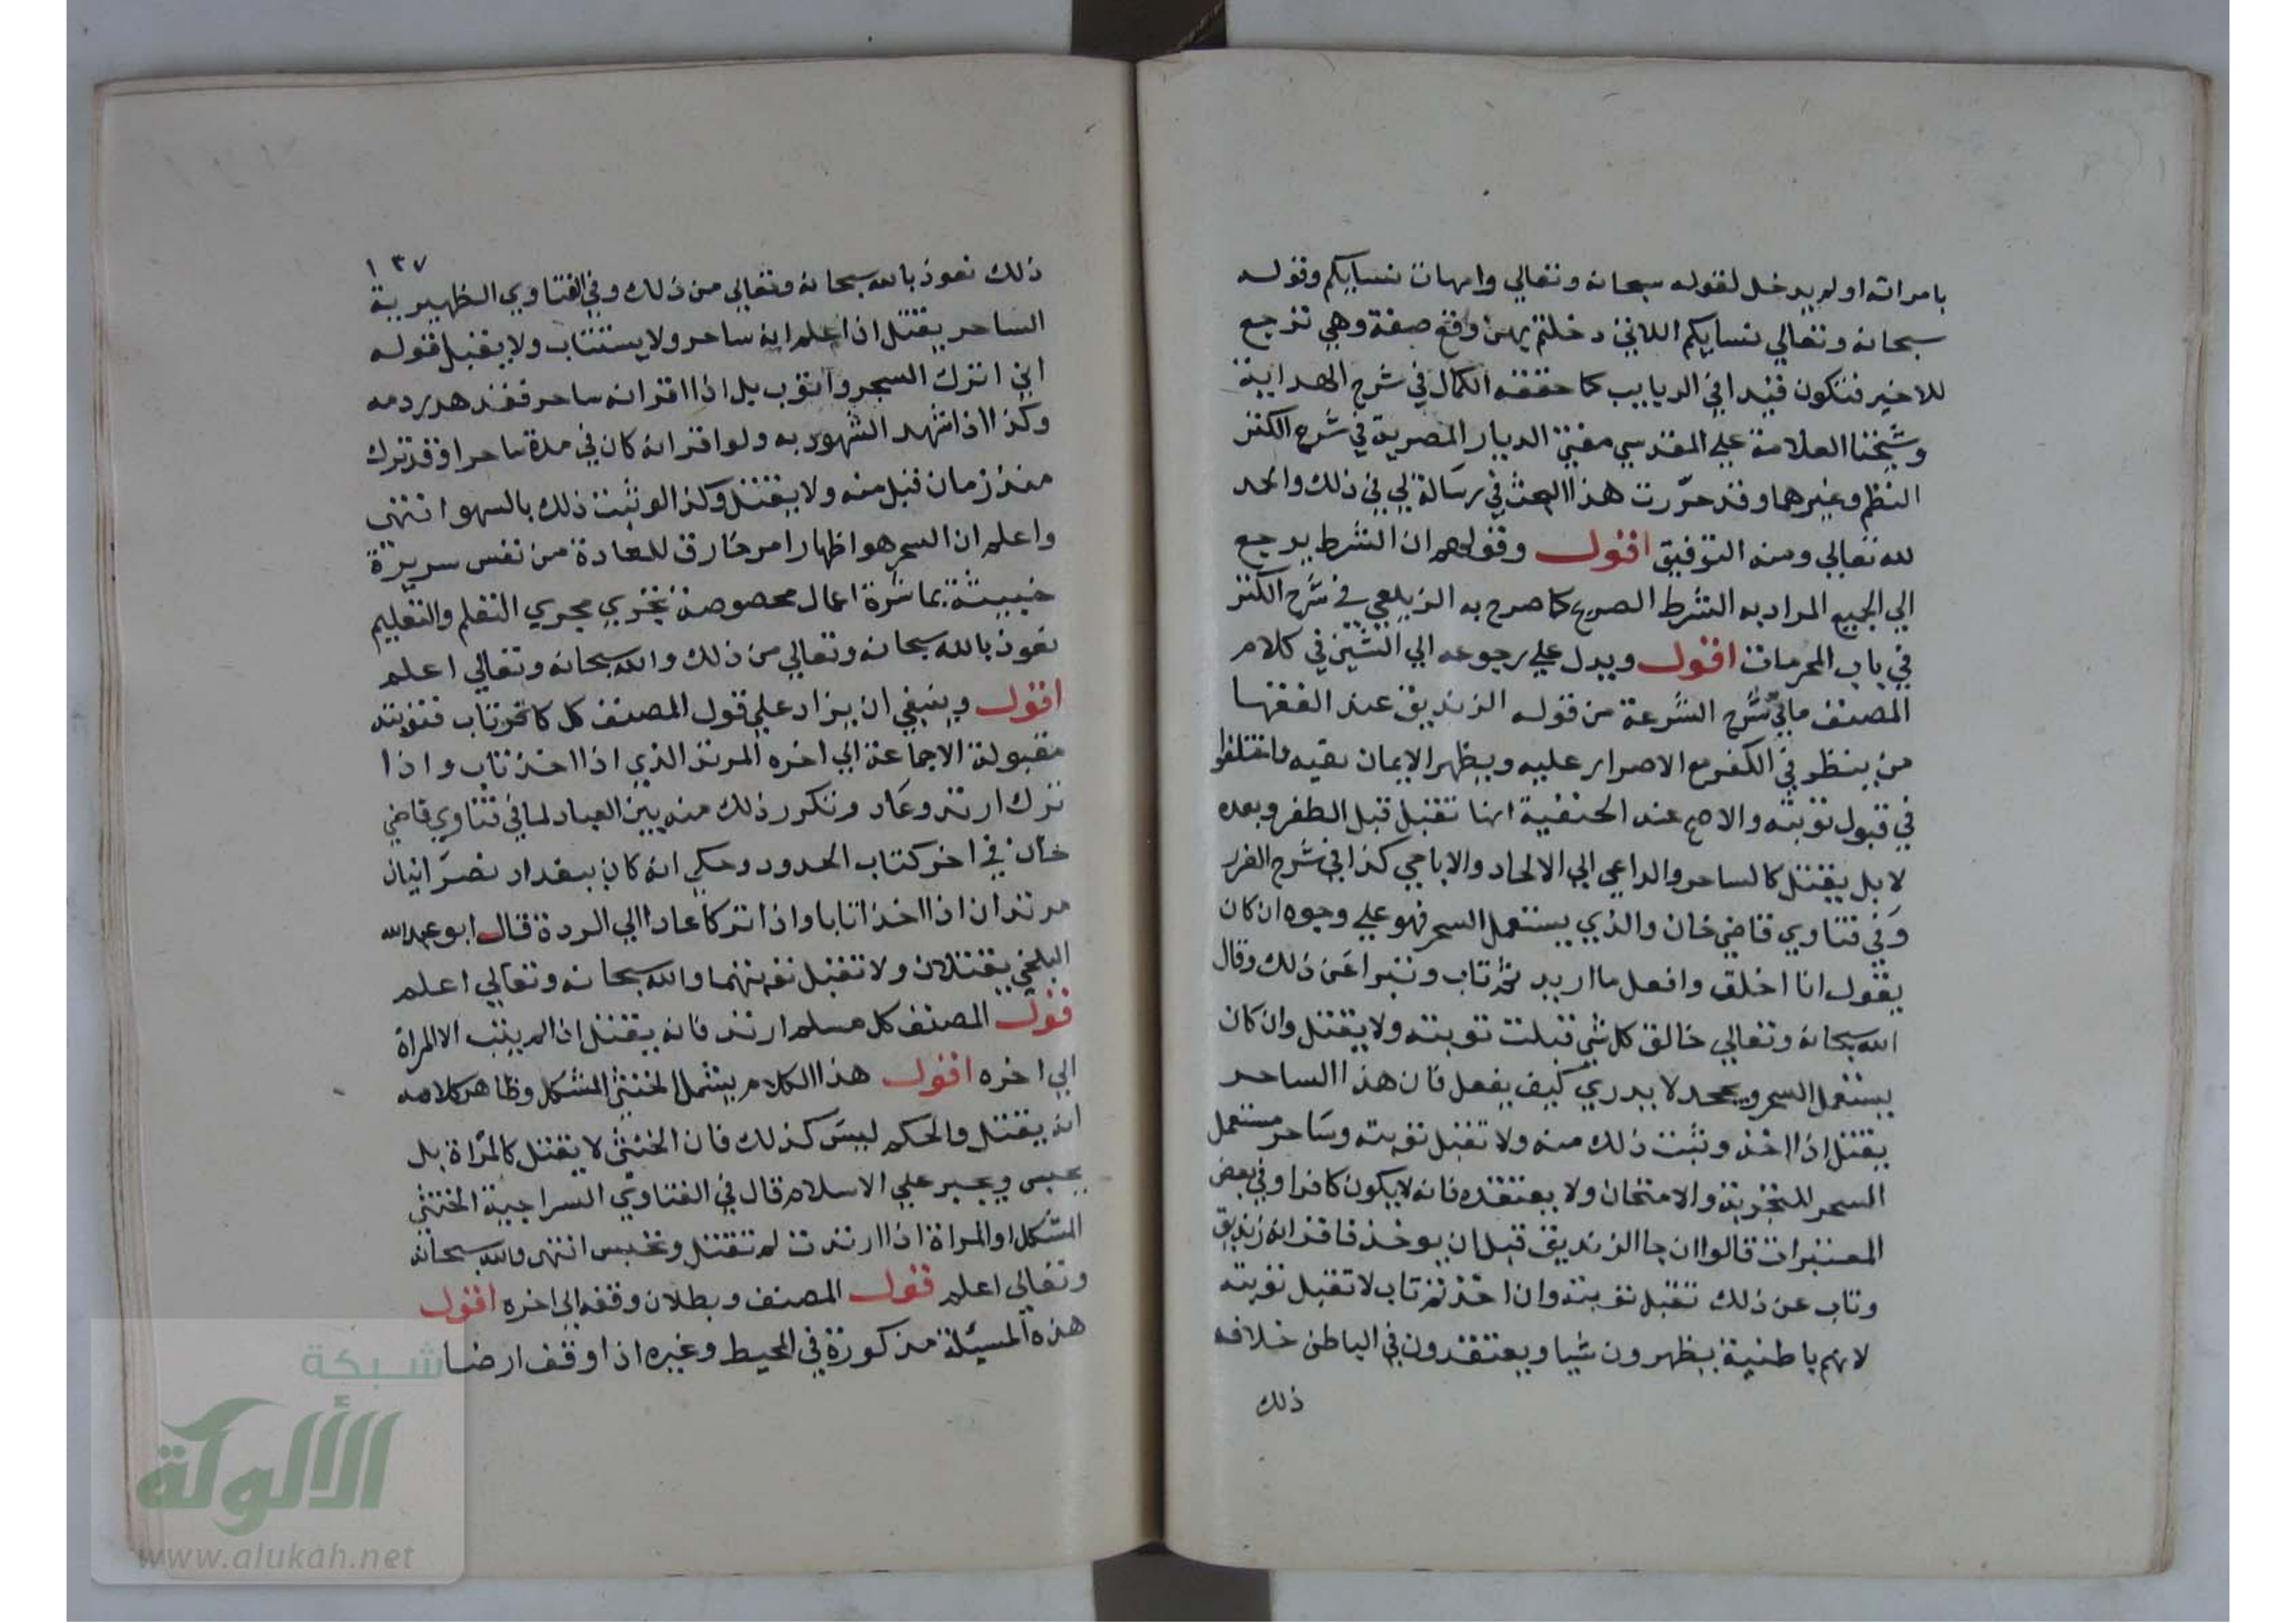 بامراته او لم يدخل لقوله سبحانه وتعالي وامهات نسايكم وقوله
سبحانه وتعالي نسايكم اللاتي دخلتم بهن وقع صفة وهي ترجع
للاخير فتكون قيدا في الربايب كما حققه الكمال في شرح الهداية
وشيخنا العلامة علي المقدسي مفتي الديار المصرية في شرح الكنز
النظم وغيرهما وقد حررت هذا البحث في رسالة لي في ذلك والحمد
لله تعالي ومنه التوفيق اقول وقولهم ان الشرط يرجع
الي الجميع المراد به الشرط الصريح كما صرح به الزيلعي في شرح الكنز
في باب المحرمات اقول ويدل علي رجوعه الي الشيين في كلام
المصنف ما في شرح الشرعة من قوله الزنديق عند الفقها
من ينظر في الكفر مع الاصرار عليه ويظهر الايمان تقيه واختلفوا
في قبول توبته والاصح عند الحنفية انها تقبل قبل الظفر وبعده
لا بل يقتل كالساحر والداعي الي الالحاد والاباحي كذا في شرح الغرر
وفي فتاوي قاضي خان والذي يستعمل السحر فهو علي وجوه ان كان
يقول انا اخلق وافعل ما اريد ثم تاب وتبرا عن ذلك وقال
الله سبحانه وتعالي خالق كل شي قبلت توبته ولا يقتل وان كان
يستعمل السحر ويجحد لا يدري كيف يفعل فان هذا الساحر
يقتل اذا اخذ وثبت ذلك منه ولا تقبل توبته وساحر مستعمل
السحر للتجربة والامتحان ولا يعتقده فانه لا يكون كافرا وفي بعض
المعتبرات قالوا ان جا الزنديق قبل ان يوخذ فاقر انه زنديق
وتاب عن ذلك تقبل توبته وان اخذ ثم تاب لا تقبل توبته
لانهم باطنية يظهرون شيا ويعتقدون في الباطن خلافه
ذلك
١٣٧
ذلك نعوذ بالله سبحانه وتعالي من ذلك وفي الفتاوي الظهيرية
الساحر يقتل ان اعلم انه ساحر ولا يستتاب ولا يقبل قوله
اني اترك السحر واتوب بل اذا اقر انه ساحر فقد هدر دمه
وكذا اذا شهد الشهود به ولو اقر انه كان في مدة ساحرا وقد ترك
منذ زمان قبل منه ولا يقتل وكذا لو ثبت ذلك بالسهو انتهي
واعلم ان السحر هو اظهار امر خارق للعادة من نفس سريرة
خبيثة بمباشرة اعمال مخصوصة تجري مجري التعلم والتعليم
نعوذ بالله سبحانه وتعالي من ذلك والله سبحانه وتعالي اعلم
اقول وينبغي ان يزاد علي قول المصنف كل كافر تاب فتوبته
مقبولة الاجماعة الي اخره المرتد الذي اذا اخذ تاب واذا
ترك ارتد وعاد وتكرر ذلك منه بين العباد لما في فتاوي قاضي
خان في اخر كتاب الحدود وحكي انه كان ببغداد نصرانيان
مرتدان اذا اخذا تابا واذا تركا عادا الي الردة قال ابو عبد الله
البلخي يقتلان ولا تقبل توبتهما والله سبحانه وتعالي اعلم
قول المصنف كل مسلم ارتد فانه يقتل ان لم يتب الا المراة
الي اخره اقول هذا الكلام يشمل الخنثي المشكل وظاهر كلامه
انه يقتل والحكم ليس كذلك فان الخنثي لا يقتل كالمراة بل
يحبس ويجبر علي الاسلام قال في الفتاوي السراجية الخنثي
المشكل او المراة اذا ارتدت لم تقتل وتحبس انتهي والله سبحانه
وتعالي اعلم قول المصنف وبطلان وقفه الي اخره اقول
هذه المسيلة مذكورة في المحيط وغيره اذا وقف ارضا
شبكة
الألوكة
www.alukah.net